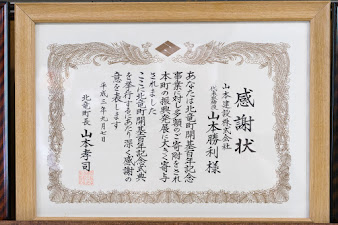 感謝状
山本建設株式会社
代表取締役
山本勝利様
あなたは北竜町開基百年記念
事業に対し多額のご寄附をされ
本町の振興発展に大きく寄与
されました
ここに北竜町開基百年記念式典
を挙行するにあたり深く感謝の
意を表します
平成三年九月七日
北竜町長
山本孝司